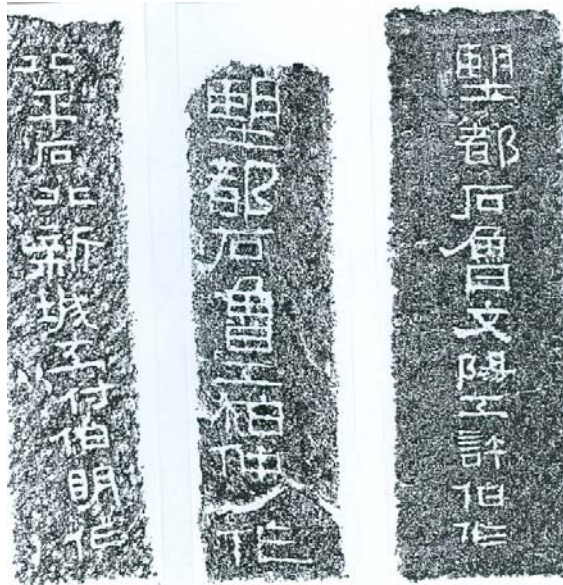 望都石魯文陽工許伯作
望都石魯工伯仲作
北平石北新城工付伯明作